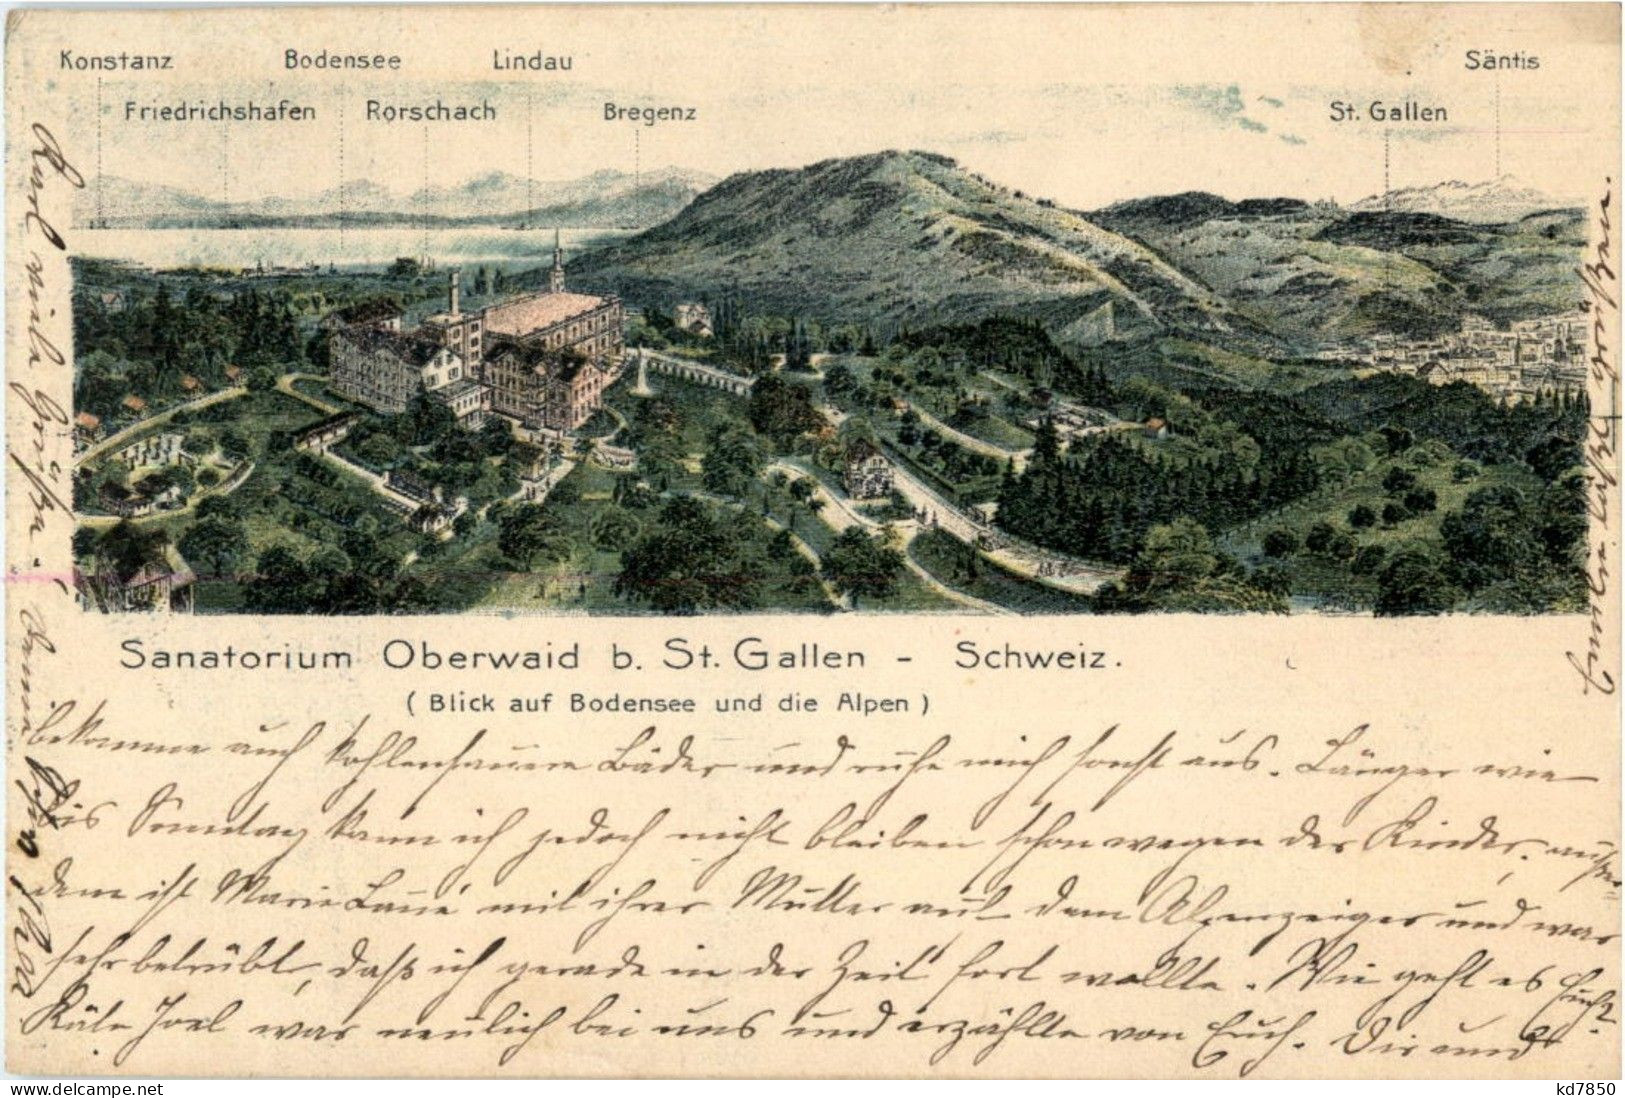 Konstanz Bodensee Lindau Säntis
Friedrichshafen Rorschach Bregenz St. Gallen
Sanatorium Oberwaid b. St. Gallen - Schweiz.
( Blick auf Bodensee und die Alpen )
bekomme auch kohlensauere Bäder und ruhe mich sonst aus. Länger wie
bis Sonntag kann ich jedoch nicht bleiben schon wegen der Kinder, außer-
dem ist Marie mit ihrer Mutter auf dem und war
sehr betrübt, daß ich gerade in der Zeit fort wollte. Wie geht es Euch?
Käte Joel war neulich bei uns und erzählte von Euch. Dir und
Karl viele Grüße.
kd7850